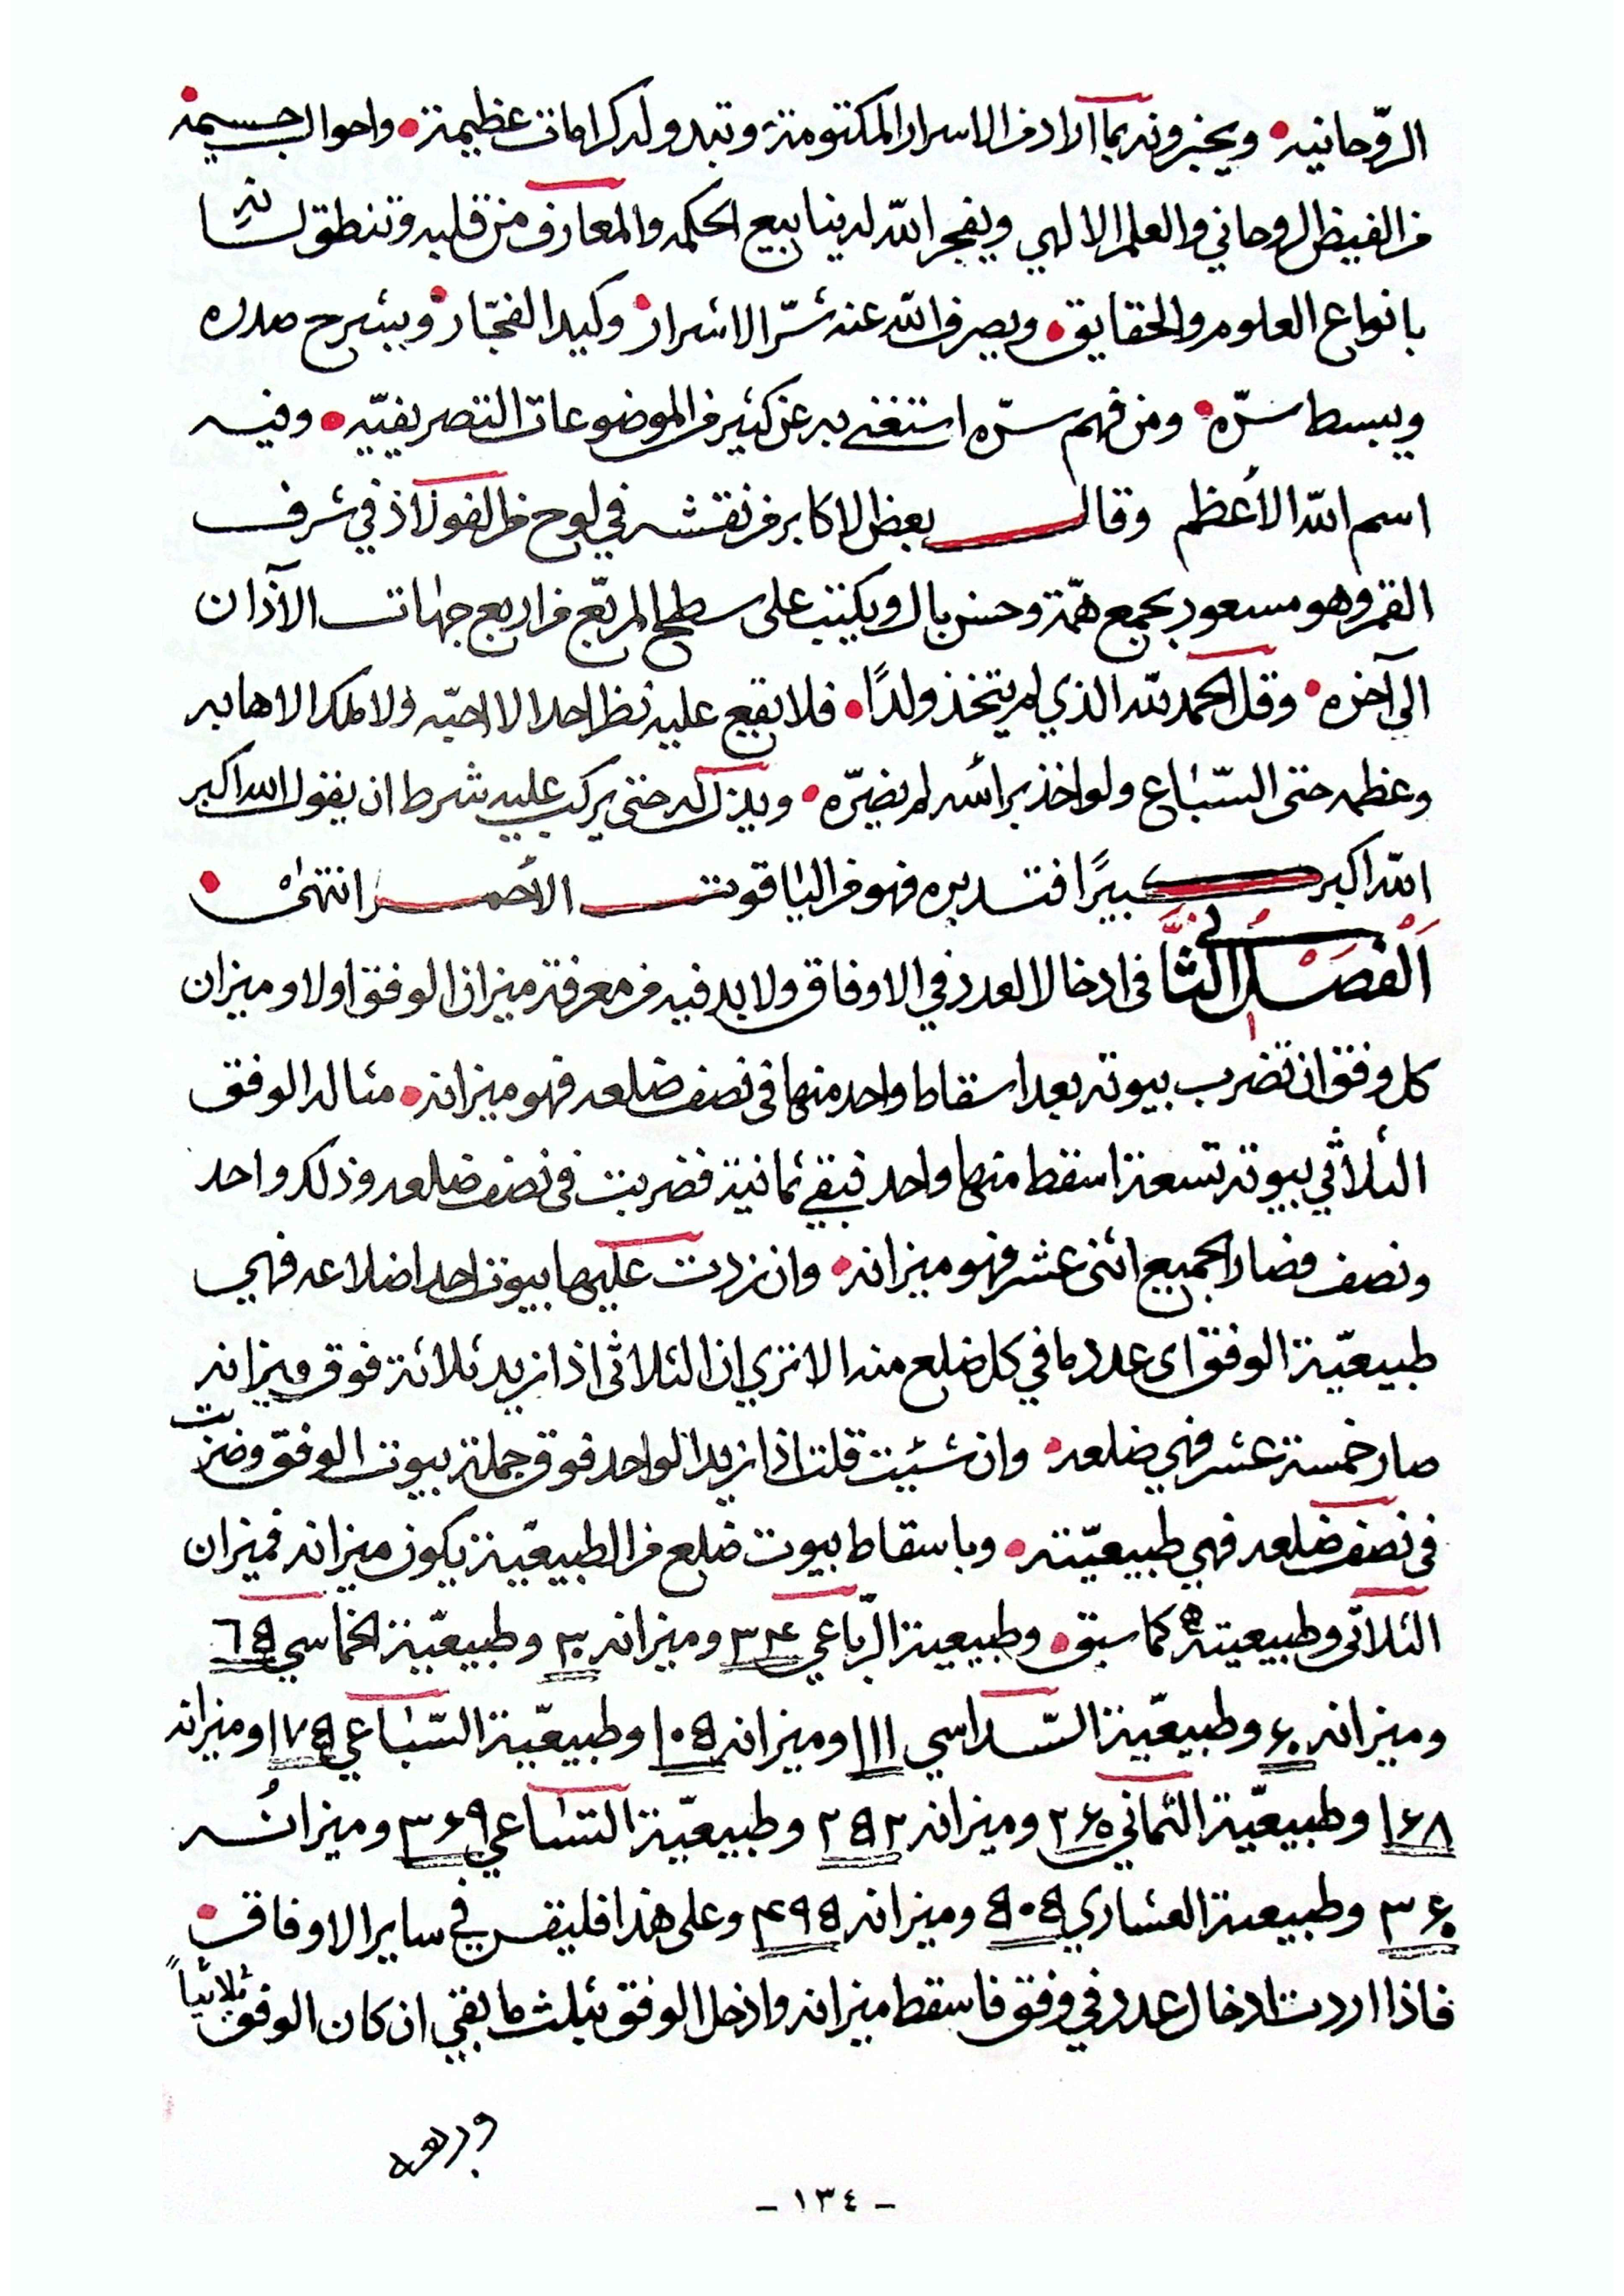 الروّحانيه ويخبرونه بما اراد من الاسرار المكتومة وتبدو له كرامات عظيمة واحوال جسيمة
من الفيض الروحاني والعلم الالهي ويفجر اللّه له ينابيع الحكمه والمعارف من قلبه وتنطق لسانه
بانواع العلوم والحقايق ويصرف اللّه عنه شرّ الاشرار وكيد الفجّار ويشرح صدره
ويبسط سرّه ومن فهم سرّه استغنى به عن كثير من الموضوعات التصريفيّه وفيه
اسم اللّه الأعظم وقال بعض الاكابر من نقشه في لوح من الفولاذ في شرف
القمر وهو مسعود بجمع همّة وحسن بال ويكتب على سطح المربّع من اربع جهات الآذان
الى آخره وقل الحمد للّه الذي لم يتخذ ولدًا فلا يقع عليه نظر احد الا احبّه ولا ملك الا هابه
وعظمه حتى السّباع ولو اخذ برأسه لم يضرّه ويذل له حتى يركب عليه شرط ان يقول الله اكبر
اللّه اكبر كبيرًا فتدبره فهو من الياقوت الأحمر انتهى
اَلْفَصْلُ الثَّاني فى ادخال العدد في الاوفاق ولا بد فيه من معرفة ميزان الوفق اولا وميزان
كل وفق ان تضرب بيوته بعد اسقاط واحد منها فى نصف ضلعه فهو ميزانه مثاله الوفق
الثلاثي بيوته تسعة اسقط منها واحد فبقي ثمانية فضربت فى نصف ضلعه وذلك واحد
ونصف فصار الجميع اثنى عشر فهو ميزانه وان زدت عليها بيوت احد اضلاعه فهي
طبيعيّة الوفق اى عدد ما في كل ضلع منه الا ترى ان الثلاثى اذا زيد ثلاثة فوق ميزانه
صار خمسة عشر فهي ضلعه وان شئيت قلت اذا زيد الواحد فوق جملة بيوت الوفق وضربت
فى نصف ضلعه فهي طبيعيّته وباسقاط بيوت ضلع من الطبيعيّة يكون ميزانه فميزان
الثلاثى وطبيعيته كما سبق وطبيعية الرّباعي ٣٤ وميزانه ٣٠ وطبيعيّة الخماسي ٦٥
وميزانه ٦٠ وطبيعيّة السّداسي ١١١ وميزانه ١٠٥ وطبيعيّة السّباعي ١٧٥ وميزانه
١٦٨ وطبيعيّة الثماني ٢٦٠ وميزانه ٢٥٢ وطبيعيّة التساعي ٣٦٩ وميزانُه
٣٦٠ وطبيعية العشاري ٥٠٥ وميزانه ٤٩٥ وعلى هذا فليقس في ساير الاوفاق
فاذا اردت ادخال عدد في وفق فاسقط ميزانه وادخل الوفق بثلث ما بقي ان كان الوفق ثلاثياً
وبربعه
- ١٣٤ -